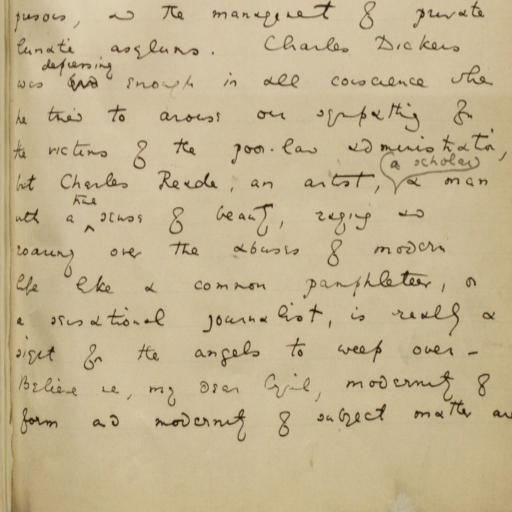 prisons, and the management of private
lunatic asylums. Charles Dickens
depressing
was enough in all conscience when
he tried to arouse our sympathy for
the victims of the poor-law administration,
a scholar
but Charles Reade, an artist, a man
true
with a sense of beauty, raging and
roaring over the abuses of modern
life like a common pamphleteer, or
a sensational journalist, is really a
sight for the angels to weep over -
Believe me, my dear Cyril, modernity of
form and modernity of subject matter are